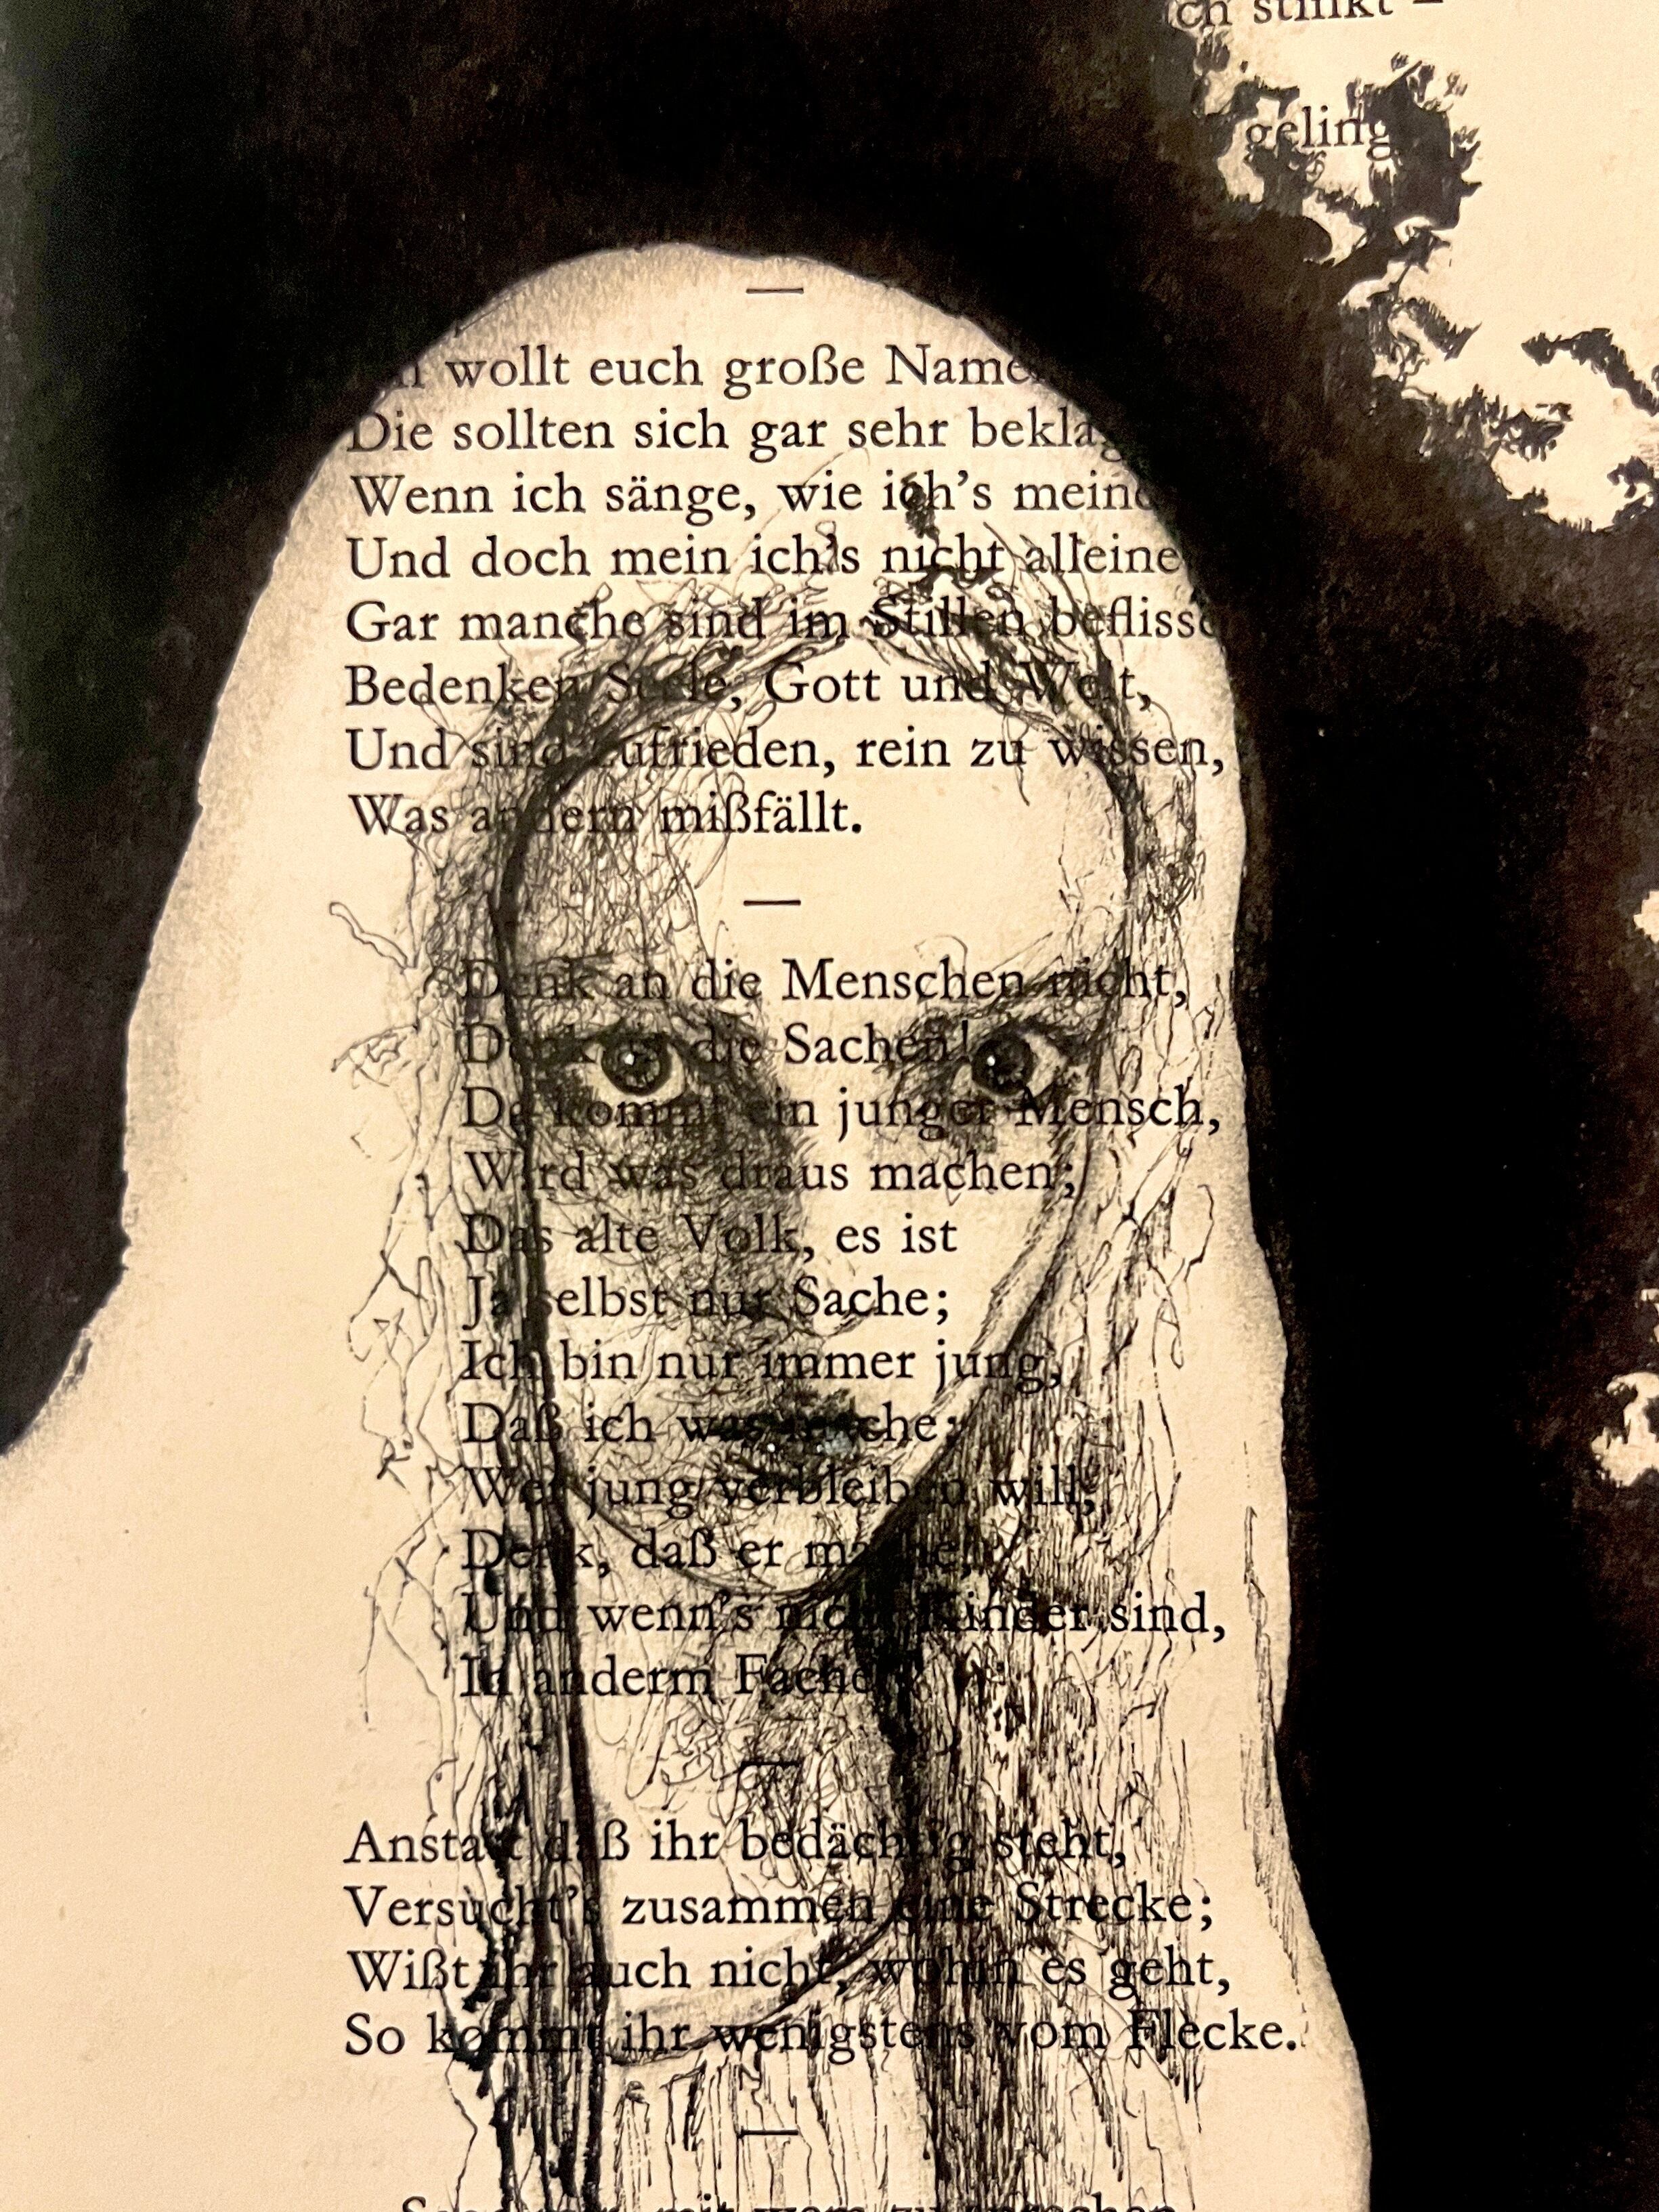 ch stinkt –
geling
wollt euch große Namen
Die sollten sich gar sehr beklag
Wenn ich sänge, wie ich's meine
Und doch mein ich's nicht alleine
Gar manche sind im Stillen beflisse
Bedenken Seele, Gott und Welt,
Und sind zufrieden, rein zu wissen,
Was andern mißfällt.
—
Denk an die Menschen nicht,
Denk an die Sachen!
Da kommt ein junger Mensch,
Wird was draus machen;
Das alte Volk, es ist
Ja selbst nur Sache;
Ich bin nur immer jung,
Daß ich was mache;
Wer jung verbleiben will,
Denk, daß er mache,
Und wenn's nicht Kinder sind,
In anderm Fache.
—
Anstatt daß ihr bedächtig steht,
Versucht's zusammen eine Strecke;
Wißt ihr auch nicht, wohin es geht,
So kommt ihr wenigstens vom Flecke.
—
mit wem zu sprechen